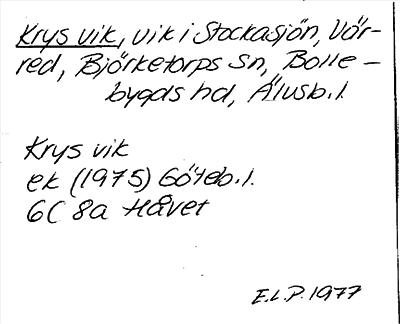 Krys vik, vik i Stockasjön, Vår-
red, Björketorps sn, Bolle-
bygds hd, Älvsb.l.
Krys vik
ek (1975) Göteb.l.
6C 8a Håvet
E.L.P. 1977